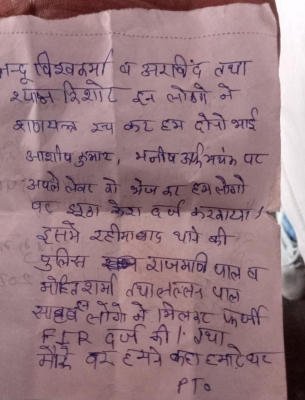 नन्दू विश्वकर्मा व अरविंद तथा
श्याम किशोर इन लोगो ने
षणयन्त्र रच कर हम दोनो भाई
आशीष कुमार, मनीष उर्फ मयंक पर
अपने लेबर को भेज कर हम लोगो
पर झूठा केस दर्ज करवाया।
इसमे रहीमाबाद थाने की
पुलिस राजमणि पाल व
मोहित शर्मा तथा लल्लन पाल
लोगो ने मिलकर फर्जी
FIR दर्ज की। तथा
मौके पर हमने कहा हमारे घर
PTO